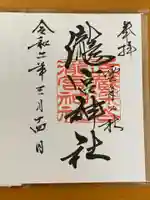 奉拝
瀧宮神社
令和二年三月十四日